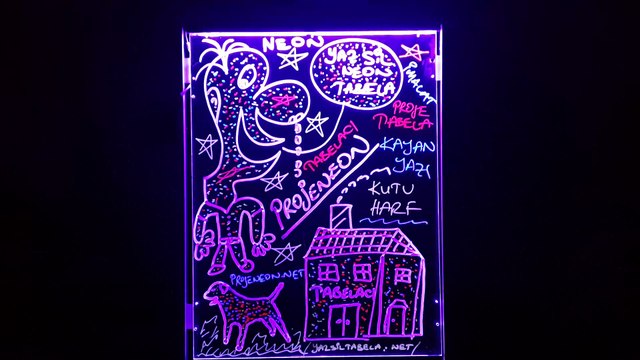 NEON
YAZ SİL
NEON
TABELA
İMALAT
PROJE
TABELA
TABELACI
PROJENEON
KAYAN
YAZI
KUTU
HARF
PROJENEON.NET
TABELACI
YAZSILTABELA.NET/